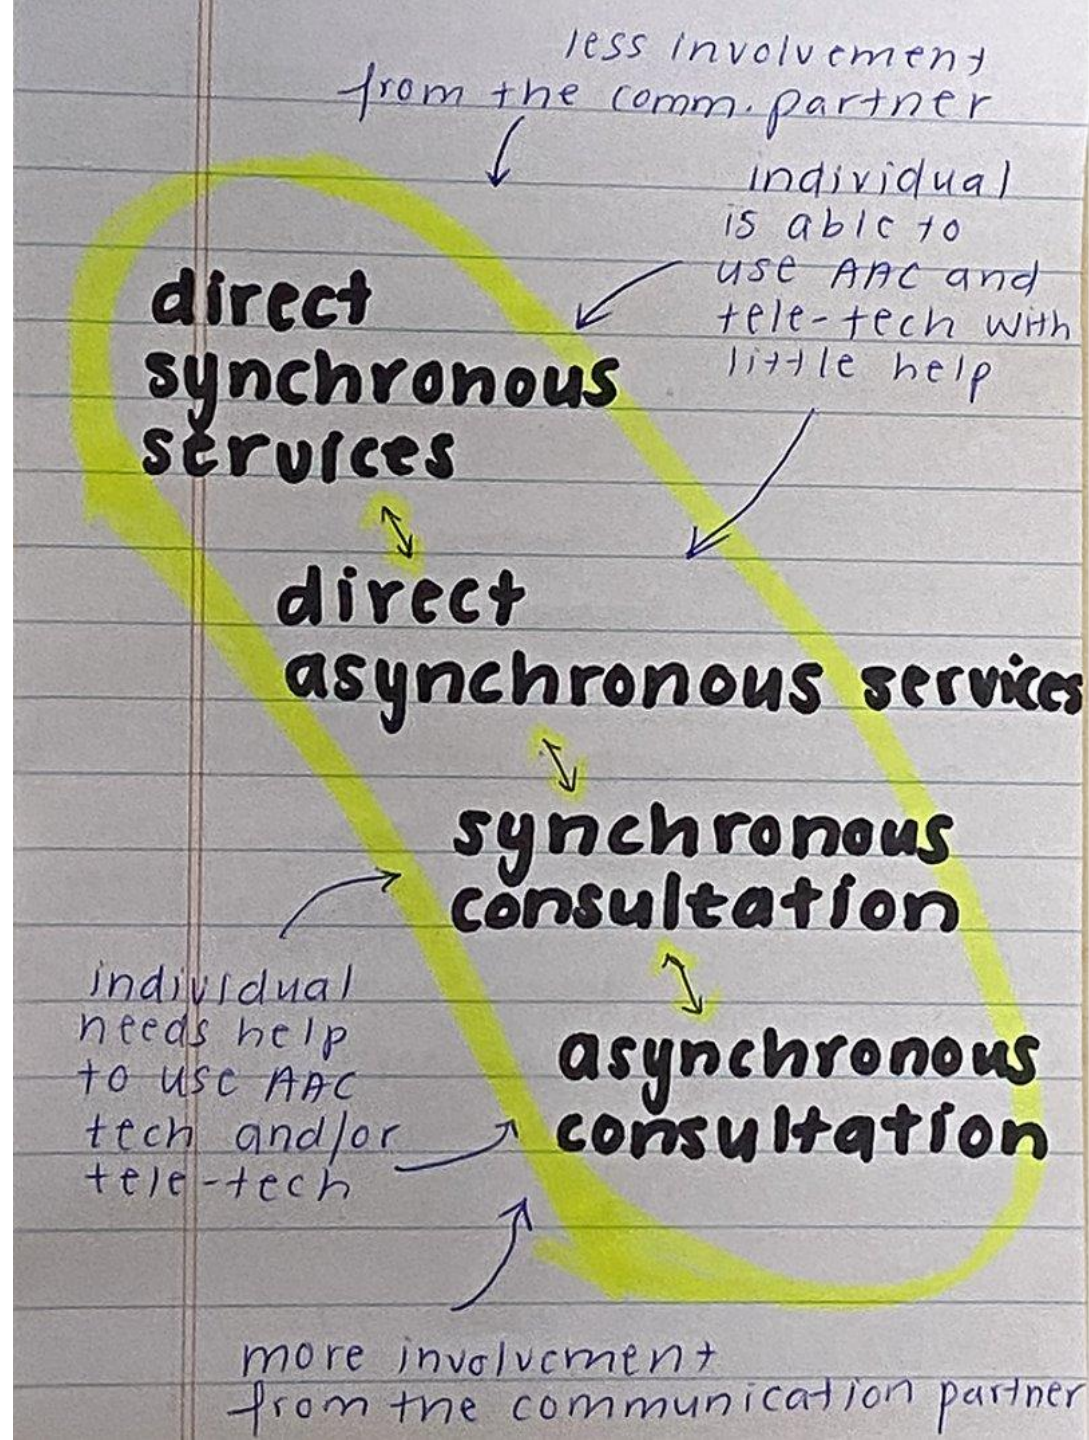 less involvement
from the comm. partner
individual
is able to
use AAC and
tele-tech with
little help
direct
synchronous
services
direct
asynchronous services
synchronous
consultation
asynchronous
consultation
individual
needs help
to use AAC
tech and/or
tele-tech
more involvement
from the communication partner